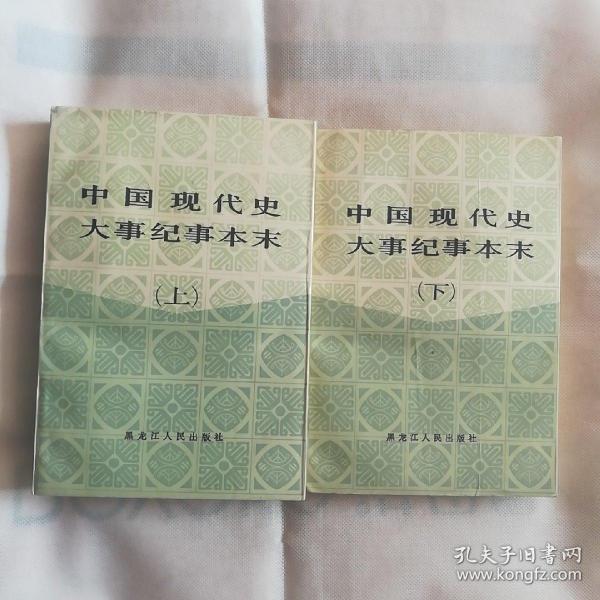 中国现代史
大事纪事本末
(上)
黑龙江人民出版社
中国现代史
大事纪事本末
(下)
黑龙江人民出版社
孔夫子旧书网
www.kongfz.com